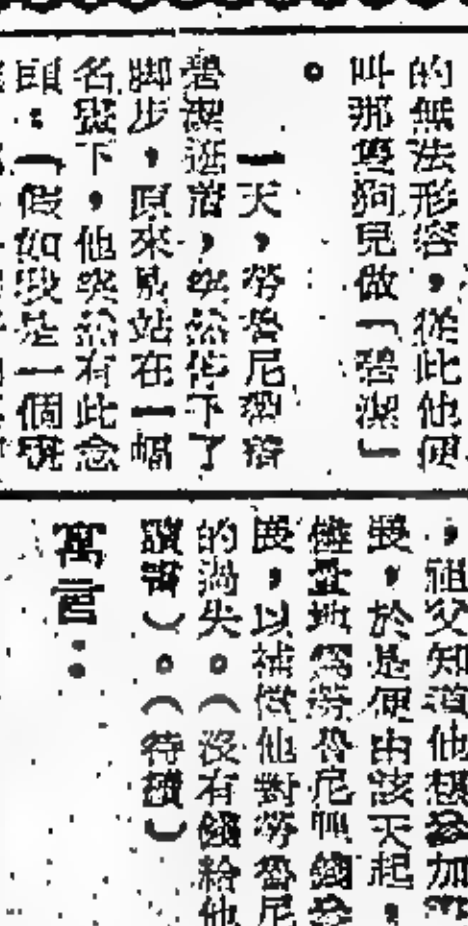 的無法形容，從此他便
叫那隻狗兒做「碧潔」
。
一天，勞魯尼帶着
碧潔逛着，突然停下了
脚步，原來是站在一幅
名畫下，他突然有此念
頭：「假如我是一個
，祖父知道他想參加
展，於是便由該天起，
儘量地為勞魯尼
展，以補償他對勞魯尼
的過失。（沒有錢給他
讀書）。（待續）
寓言：